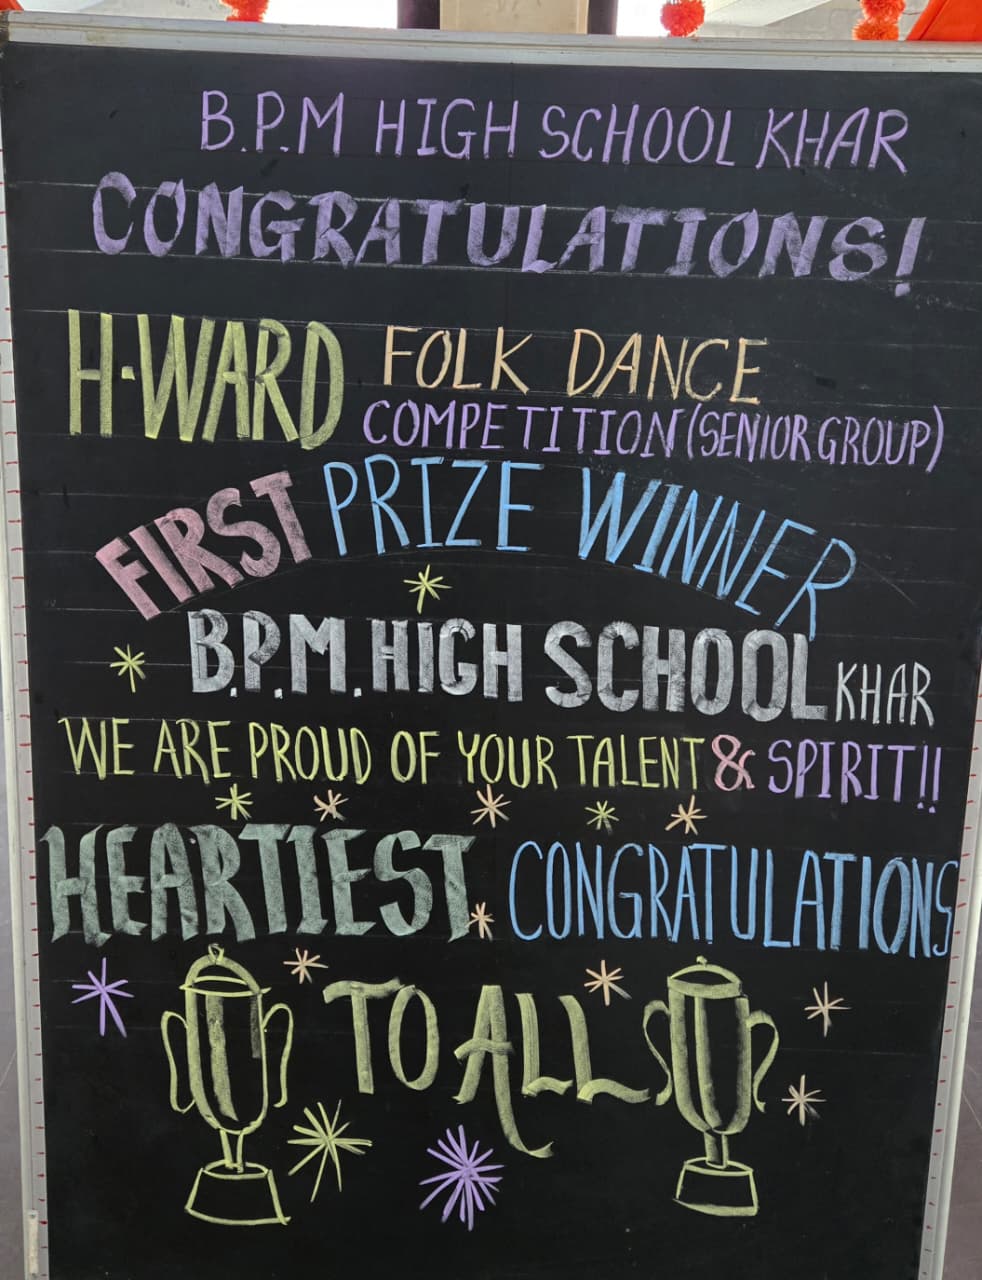 B.P.M HIGH SCHOOL KHAR
CONGRATULATIONS!
H-WARD FOLK DANCE
COMPETITION (SENIOR GROUP)
FIRST PRIZE WINNER
B.P.M. HIGH SCHOOL KHAR
WE ARE PROUD OF YOUR TALENT & SPIRIT!!
HEARTIEST CONGRATULATIONS
TO ALL